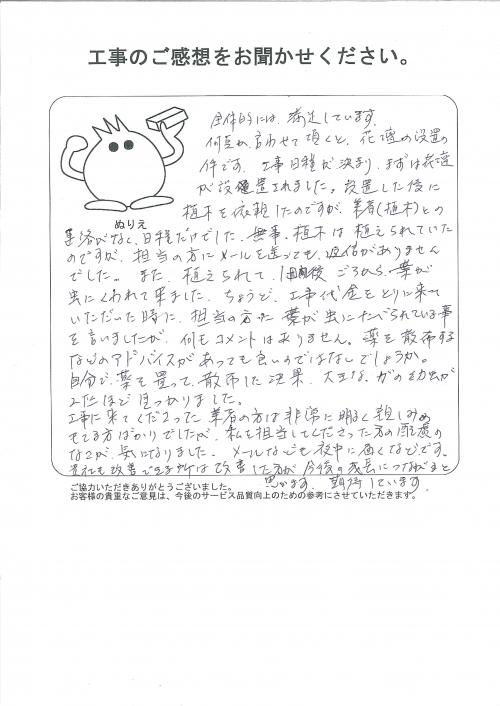 工事のご感想をお聞かせください。
全体的には、満足しています。
何点か言わせて頂くと、花壇の設置の
件です。工事日程が決まり、まずは花壇
が設置されました。設置した後に
植木を依頼したのですが、業者(植木)との
ぬりえ
連絡がなく、日程だけでした。無事、植木は植えられていた
のですが、担当の方にメールを送っても、返信がありません
でした。また、植えられて、1週間後ごろから、葉が
虫にくわれて来ました。ちょうど、工事代金をとりに来て
いただいた時に、担当の方に葉が虫にたべられている事
を言いましたが、何もコメントはありません。薬を散布する
などのアドバイスがあっても良いのではないでしょうか。
自分で、薬を買って、散布した結果、大きな、がの幼虫が
2匹ほど見つかりました。
工事に来てくださった業者の方は非常に明るく親しみの
もてる方ばかりでしたが、私を担当してくださった方の配慮の
なさが、気になりました。メールなども夜中に届くなどです。
是非とも改善できる所は改善した方が今後の成長につながると
思います。期待しています。
ご協力いただきありがとうございました。
お客様の貴重なご意見は、今後のサービス品質向上のための参考にさせていただきます。